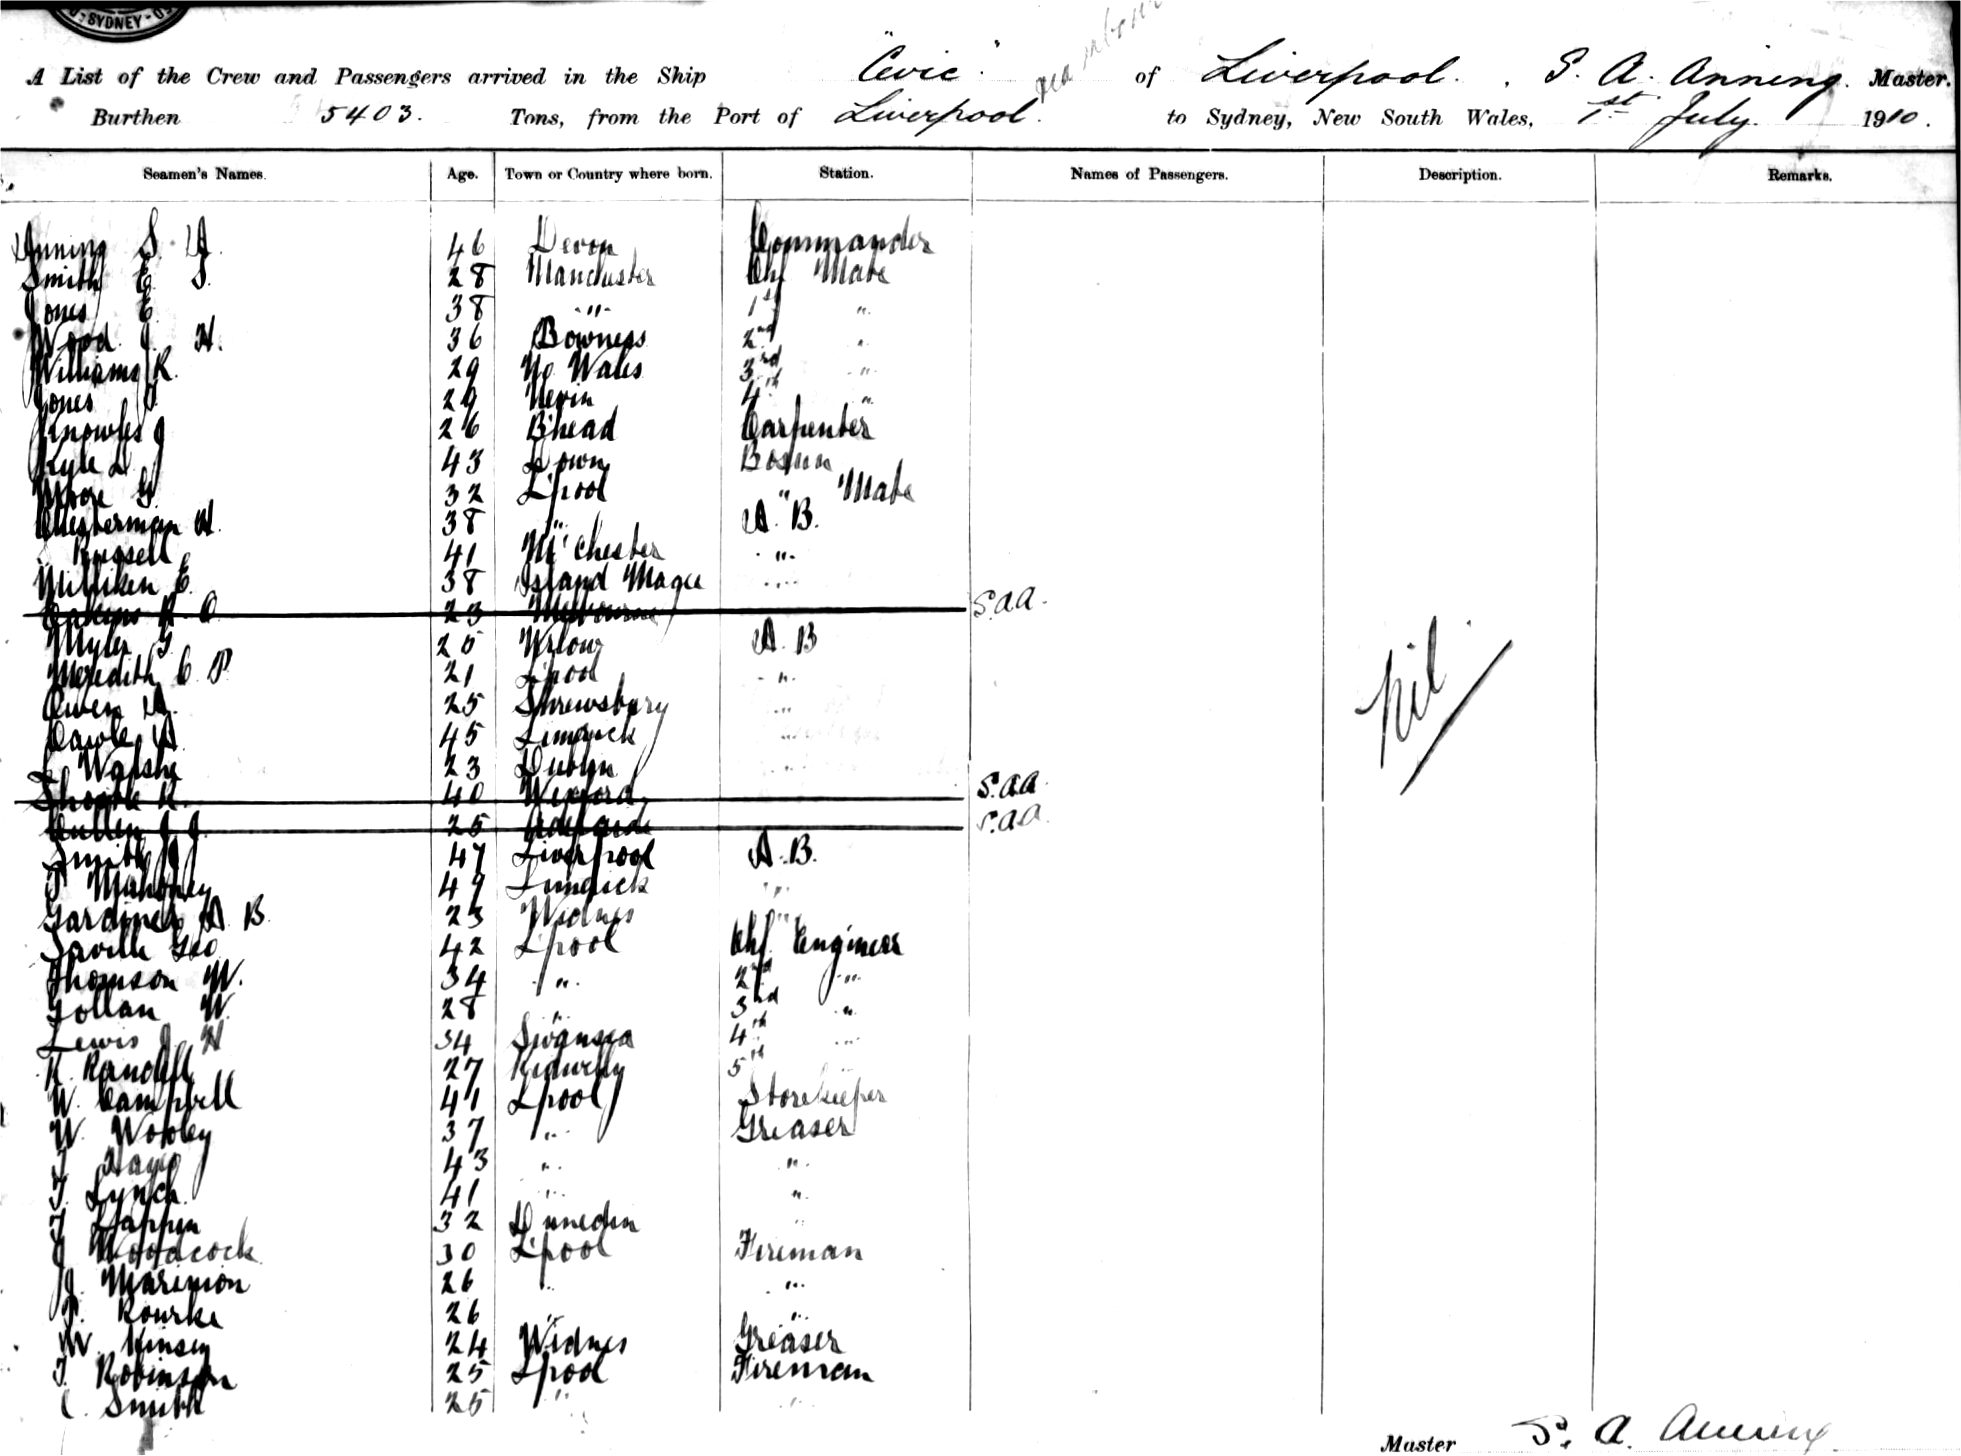 SYDNEY
A List of the Crew and Passengers arrived in the Ship "Cevic" of Liverpool. S. A. Anning. Master.
Burthen 5403. Tons, from the Port of Liverpool. to Sydney, New South Wales, 1st July. 1910.
Seamen's Names. Age. Town or Country where born. Station. Names of Passengers. Description. Remarks.
Anning S. A. 46 Devon Commander
Smith E. S. 28 Manchester Chf Mate
Jones E. 38 " 1st "
Wood J. H. 36 Bowness 2nd "
Williams R. 29 No Wales 3rd "
Jones 29 Nevin 4th "
Knowles J 26 B'head Carpenter
Kyle D. 43 Down Bosun
Moore G 32 L'pool " Mate
Chesterman H. 38 " A. B.
Russell 41 M'chester "
Milliken E. 38 Island Magee "
R. O. 23 Melbourne S.A.A.
Myler G. 25 A. B
Meredith C. P. 21 L'pool "
Owen A. 25 Shrewsbury "
A. 45 Limerick "
Walshe 23 Dublin "
R. 40 Wexford S.A.A.
Cullen J J. 25 S.A.A.
Smith J J 47 Liverpool A. B.
T. Mahoney 49 Limerick "
Gardiner A B. 23 Widnes "
Saville Geo 42 L'pool Chf Engineer
Thomson W. 34 " 2nd "
Gollan W. 28 " 3rd "
Lewis J. H 34 Swansea 4th "
R. Randell 27 Kidwelly 5th "
W. Campbell 41 Lpool Storekeeper
W. Wooley 37 " Greaser
T Hayes 43 " "
T. Lynch. 41 " "
T Lappin 32 Dunedin "
J Woodcock 30 L'pool Fireman
J. Marimon 26 " "
P. Rourke 26 " "
W. Kinsey 24 Widnes Greaser
T. Robinson 25 Lpool Fireman
C. Smith 25 " "
Nil
Master S. A. Anning